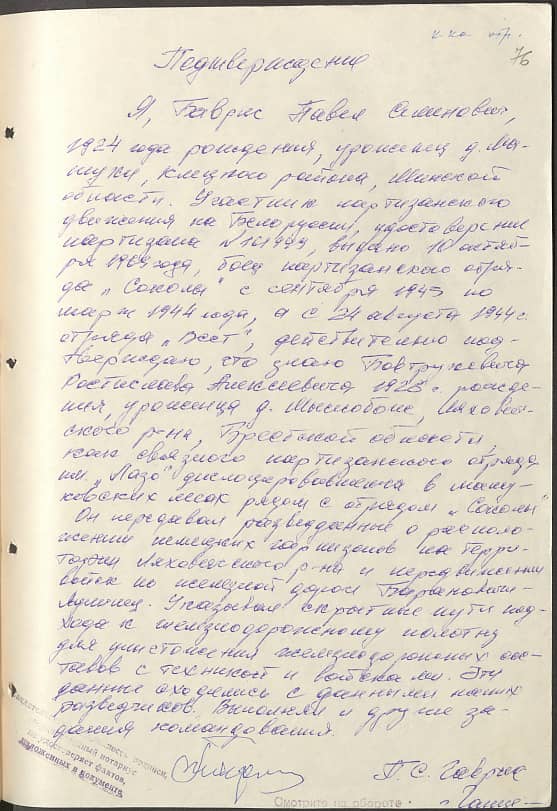 76
Подтверждение
Я, Гаврис Павел Семенович,
1924 года рождения, уроженец д.
Клецкого района, Минской
области. Участник партизанского
движения на Белоруссии, удостоверение
партизана выдано 10 октяб-
ря 1969 года, боец партизанского отря-
да „Соколы" с сентября 1943 по
март 1944 года, а с 24 августа 1944 г.
отряда действительно под-
тверждаю, что знаю Бовтружевича
Ростислава Алексеевича рожде-
ния, уроженца д. Мыслобоже, Ляхович-
ского р-на, Брестской области,
как связного партизанского отряда
им. „Лазо" дислоцировавшегося в
лесах рядом с отрядом „Соколы"
Он передавал разведданные о располо-
жении немецких гарнизонов на терри-
тории Ляховичского р-на и передвижении
войск по железной дороге Барановичи-
Лунинец. Указывал скрытные пути под-
хода к железнодорожному полотну
для уничтожения железнодорожных сос-
тавов с техникой и войсками. Эти
данные сходились с данными наших
разведчиков. Выполнял и другие за-
дания командования.
П. С. Гаврис
нотариус
удостоверяет фактов,
изложенных в документе
Смотрите на обороте